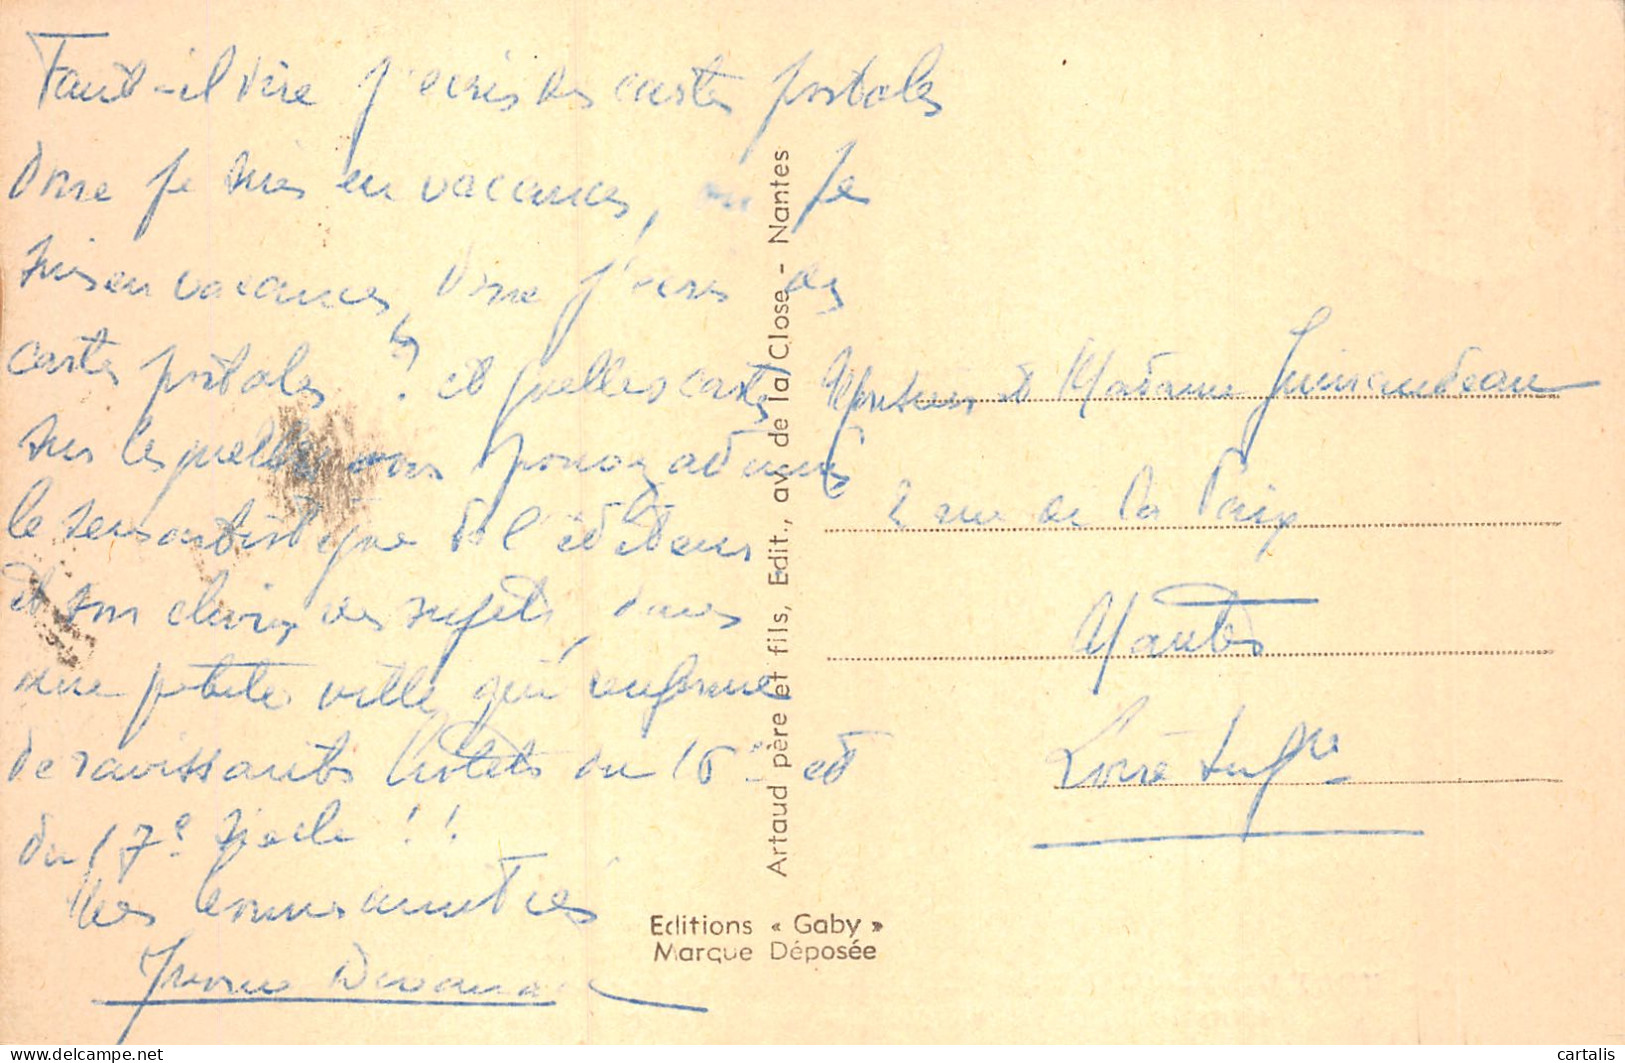 Faut-il dire j'écris des cartes postales
donc je suis en vacances, ou je
suis en vacances, donc j'écris des
cartes postales ? et quelles cartes
sur lesquelles vous pouvez admirer
le sens artistique de l'éditeur
et son choix des sujets, dans
une petite ville qui renferme
de ravissants hôtels du 16e et
du 17e siècle !!
Mes bonnes amitiés
Yvonne
Monsieur et Madame
2 rue de la Paix
Nantes
Loire Infre
Artaud père et fils, Edit., av. de la Close - Nantes
Editions « Gaby »
Marque Déposée
cartalis